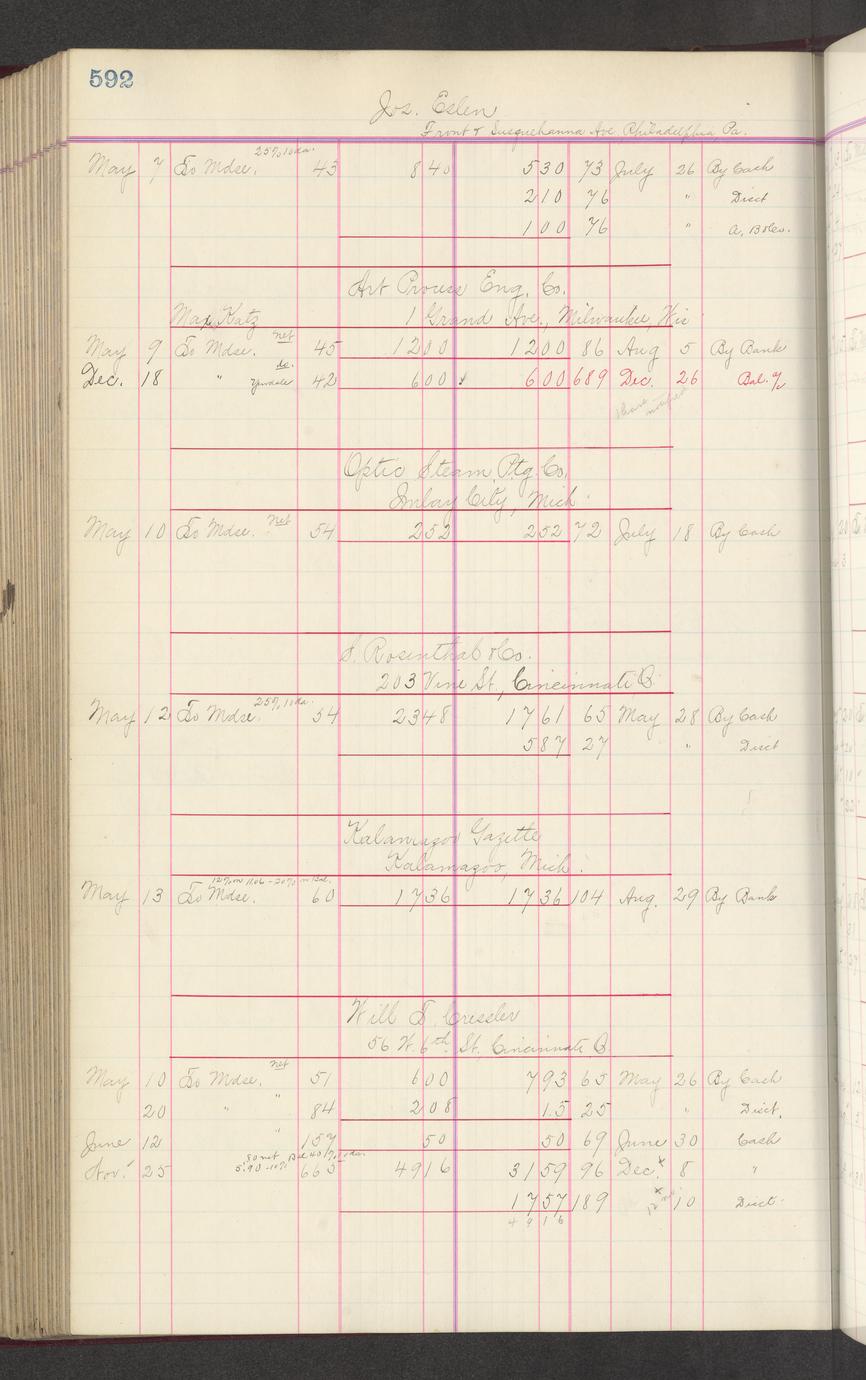 592
Jos. Eslen
Front & Susquehanna Ave, Philadelphia, Pa.
25% 10 da.
May 7 To Mdse. 43 840 530 73 July 26 By Cash
210 76 " Disct
100 76 " a, B & Co.
Art Process Eng. Co.
Max Katz 1 Grand Ave., Milwaukee, Wis
net
May 9 To Mdse. 45 1200 1200 86 Aug 5 By Bank
do.
Dec. 18 " 42 600 600 689 Dec. 26 Bal. a/c
Optic Steam Ptg. Co.
Imlay City, Mich.
May 10 To Mdse. net 54 252 252 72 July 18 By Cash
S. Rosenthal & Co.
203 Vine St., Cincinnati O.
25% 10 da.
May 12 To Mdse. 54 2348 1761 65 May 28 By Cash
587 27 " Disct
Kalamazoo Gazette
Kalamazoo, Mich.
12% on 11.06 - 20% on Bal.
May 13 To Mdse. 60 1736 1736 104 Aug. 29 By Bank
Will T. Cressler
56 W. 6th St., Cincinnati O
net
May 10 To Mdse. 51 600 793 65 May 26 By Cash
20 " " 84 208 15 25 " Disct.
June 12 " 157 50 50 69 June 30 Cash
50 net Bal 40% 10 da.
Nov. 25 5.90 - 10% 665 4916 3159 96 Dec. 8 "
1757 189 10 Disct.
4916